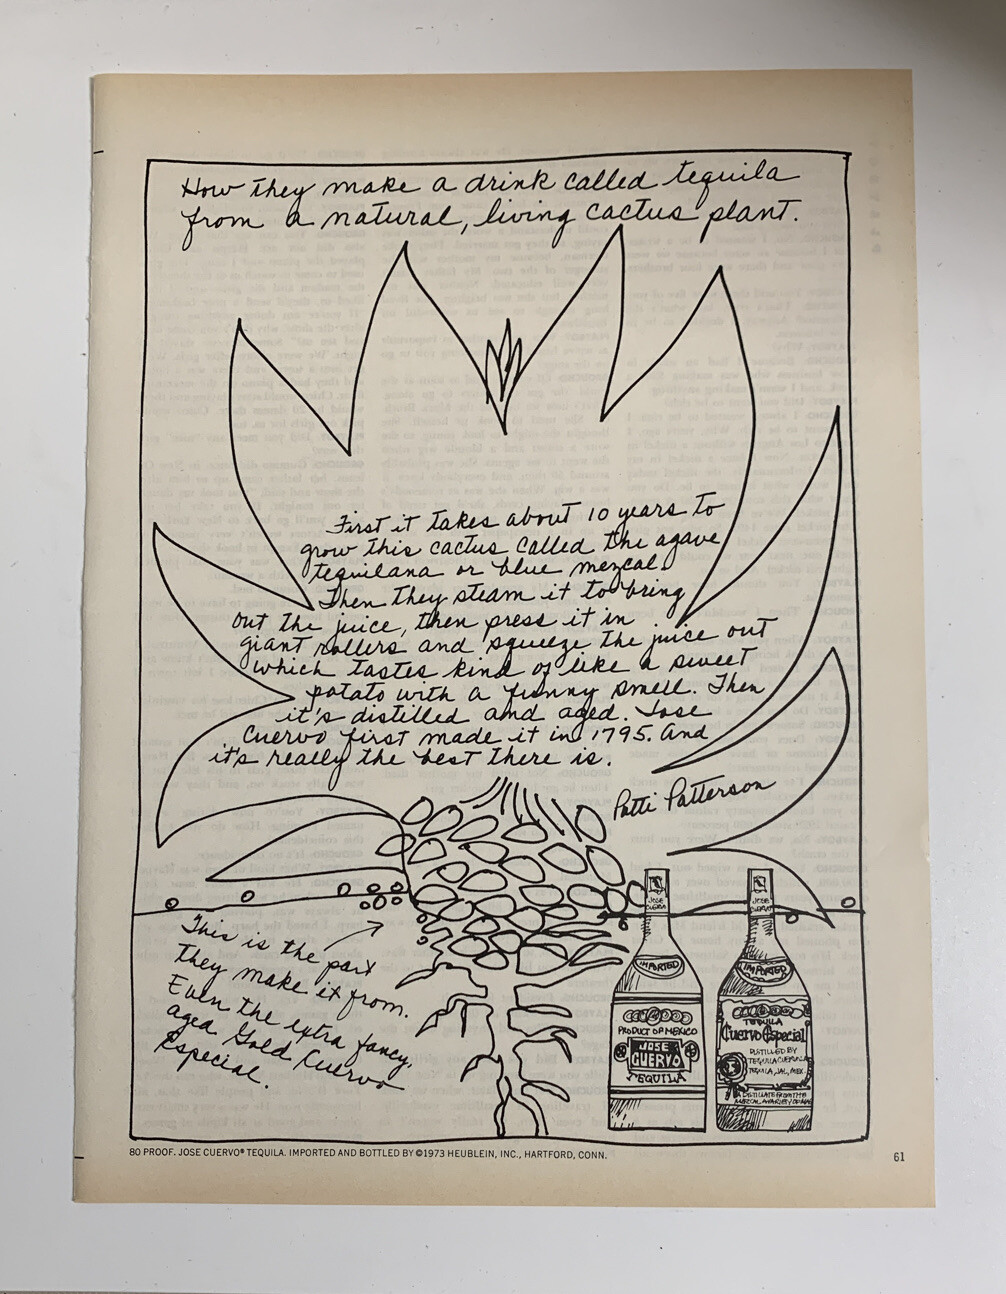 How they make a drink called tequila
from a natural, living cactus plant.
First it takes about 10 years to
grow this cactus called the agave
tequilana or blue mezcal.
Then they steam it to bring
out the juice, then press it in
giant rollers and squeeze the juice out
which tastes kind of like a sweet
potato with a funny smell. Then
it's distilled and aged. Jose
Cuervo first made it in 1795. And
it's really the best there is.
Patti Patterson
This is the part
they make it from.
Even the extra fancy,
aged Gold Cuervo
Especial.
JOSE
CUERVO
IMPORTED
PRODUCT OF MEXICO
JOSE
CUERVO
TEQUILA
JOSE
CUERVO
IMPORTED
TEQUILA
Cuervo Especial
DISTILLED BY
TEQUILA CUERVO
TEQUILA, JAL, MEX.
A DISTILLATE FROM THE
MEZCAL, A VARIETY OF
80 PROOF. JOSE CUERVO® TEQUILA. IMPORTED AND BOTTLED BY ©1973 HEUBLEIN, INC., HARTFORD, CONN.
61